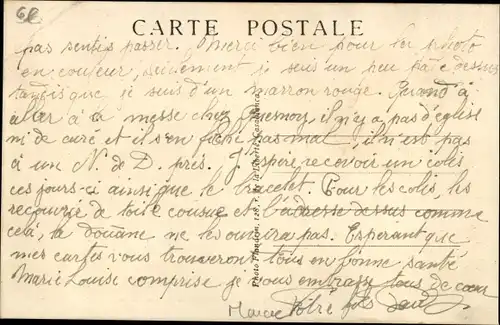 62
CARTE POSTALE
pas sentis passer. Merci bien pour la photo
en couleur, seulement je suis un peu pâle dessus
tandis que je suis d'un marron rouge. Quand à
aller à la messe chez Guesnoy, il n'y a pas d'église
ni de curé et il s'en fiche pas mal, il n'est pas
à un N. de D. près. J'espère recevoir un colis
ces jours-ci ainsi que le bracelet. Pour les colis, les
recouvrir de toile cousue et l'adresse dessus comme
cela, la douane ne les ouvrira pas. Espérant que
mes cartes vous trouveront tous en bonne santé
Marie Louise comprise je vous embrasse tous de cœur
Votre fils
Photo